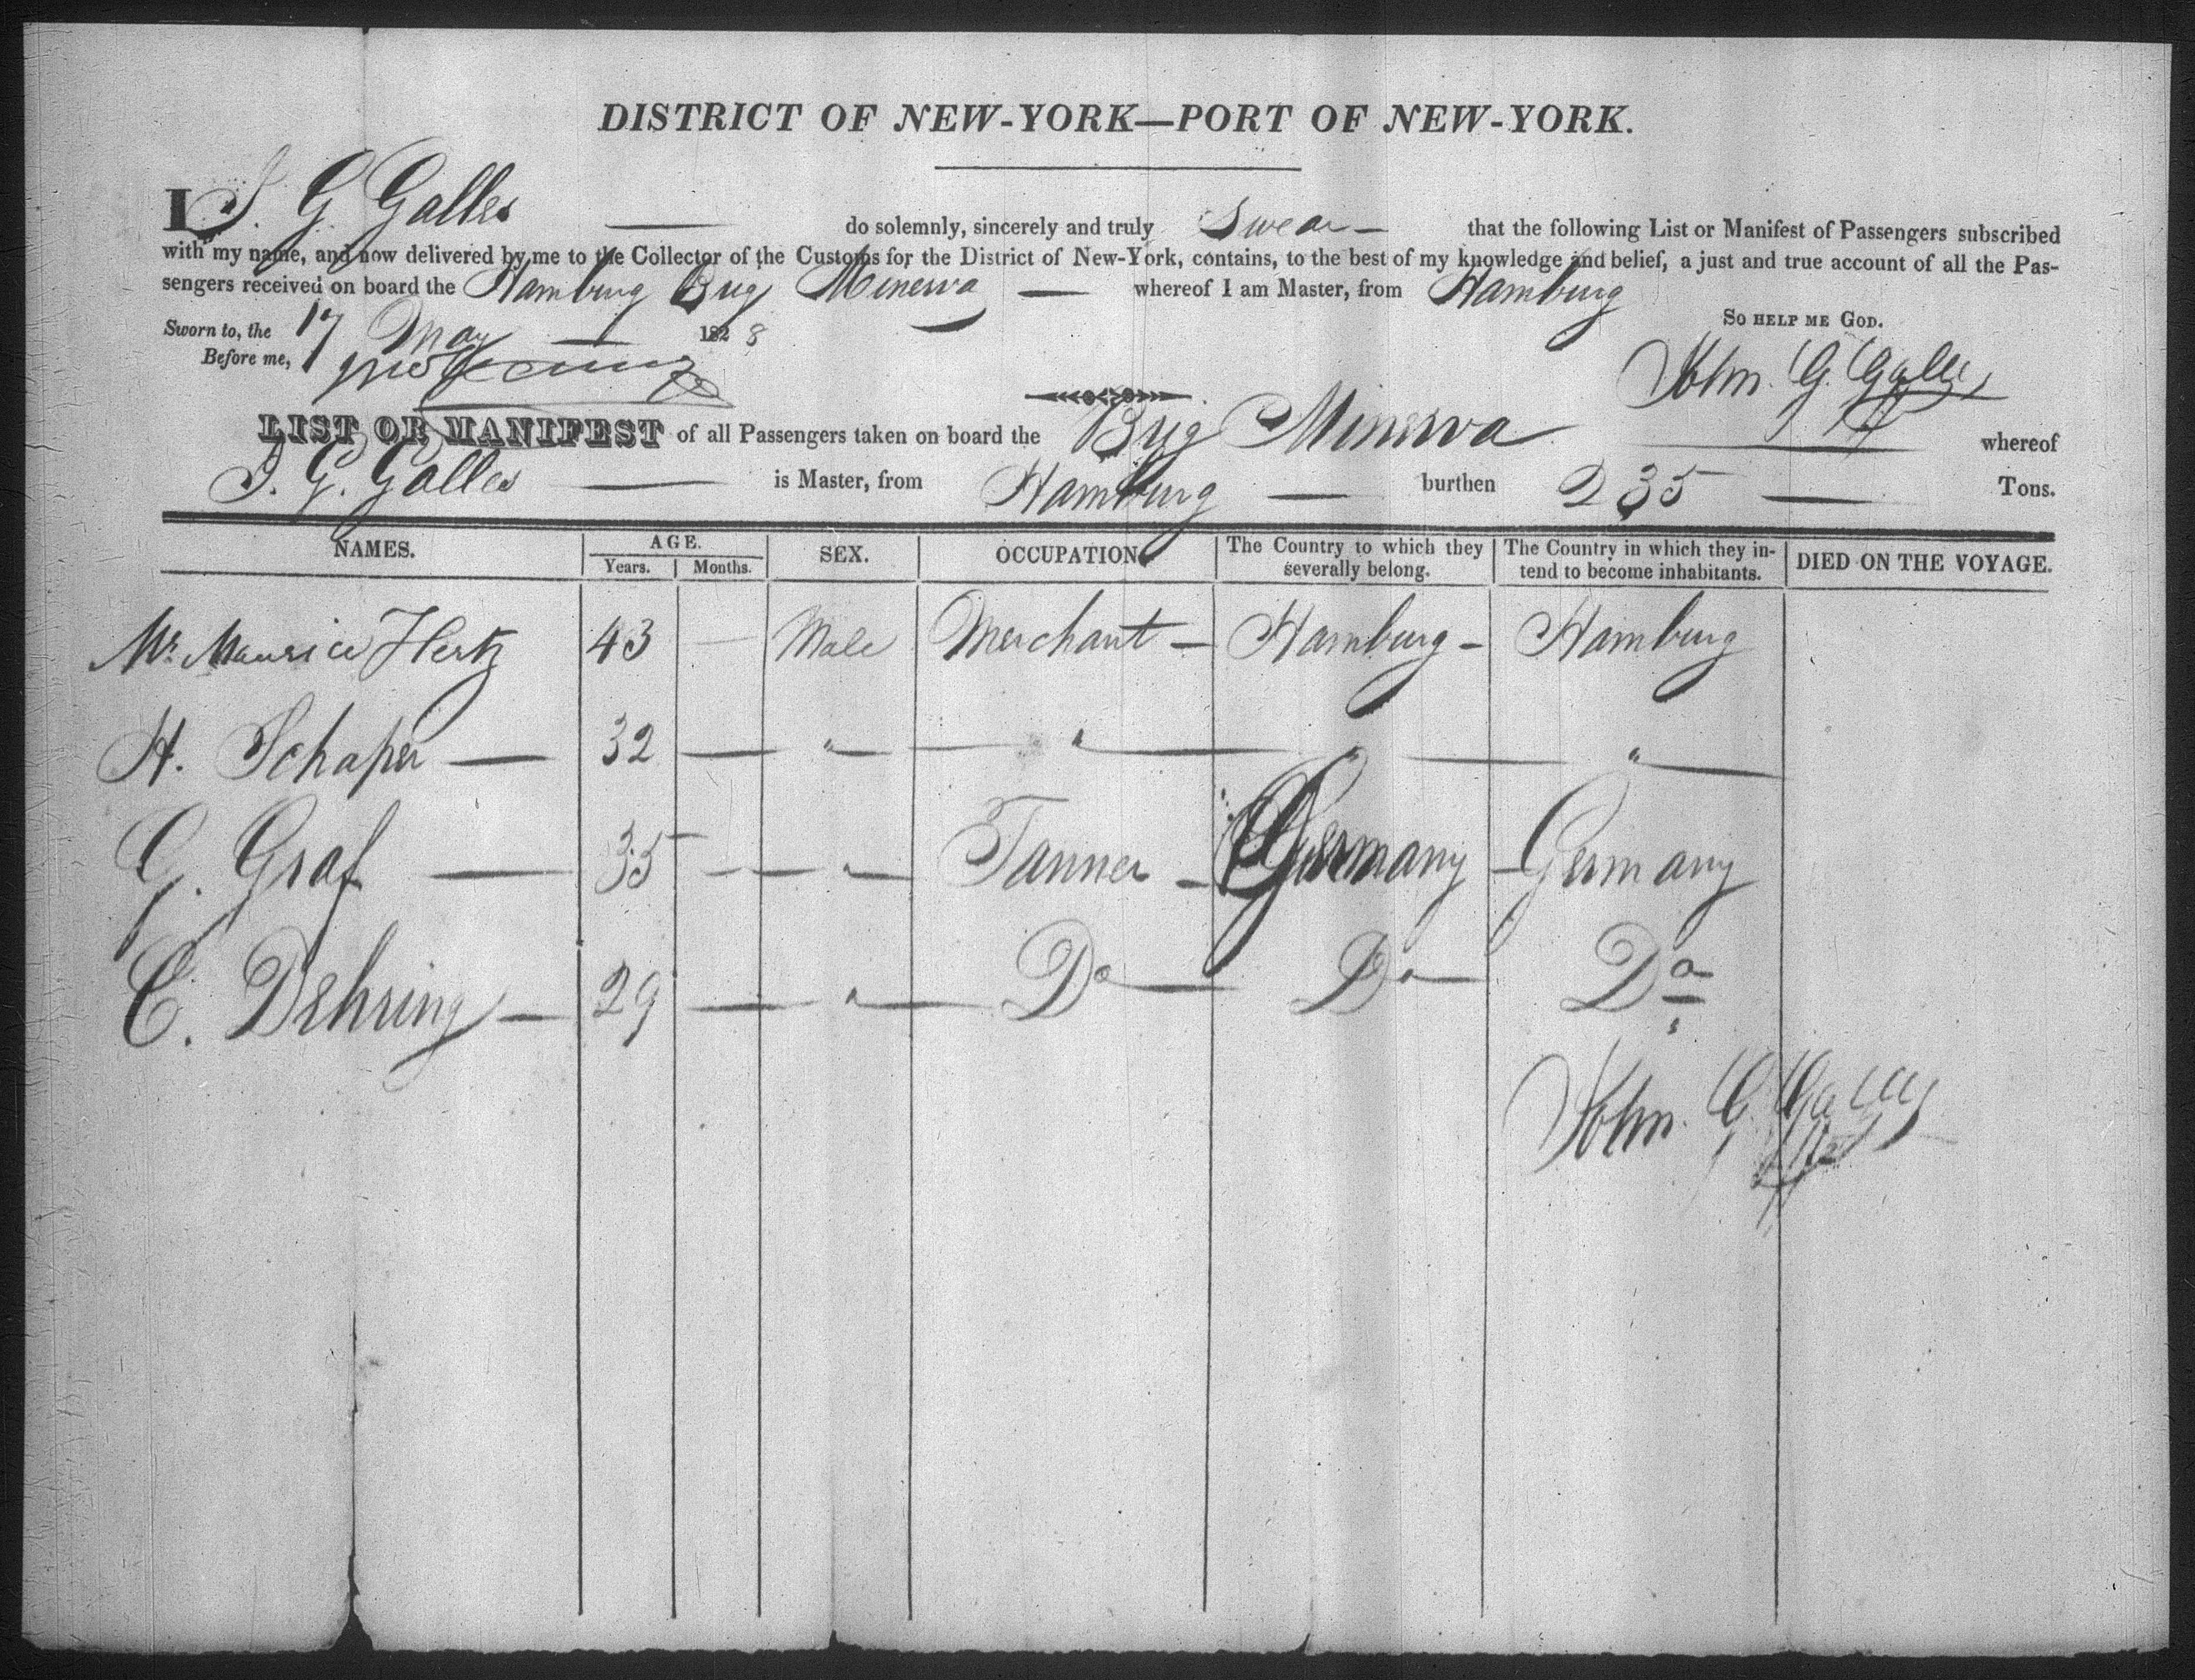 DISTRICT OF NEW-YORK—PORT OF NEW-YORK.
I J. G. Galles — do solemnly, sincerely and truly Swear — that the following List or Manifest of Passengers subscribed
with my name, and now delivered by me to the Collector of the Customs for the District of New-York, contains, to the best of my knowledge and belief, a just and true account of all the Pas-
sengers received on board the Hamburg Brig Minerva — whereof I am Master, from Hamburg
So HELP ME GOD.
Sworn to, the 17 May — 1828
Before me,
John. G. Galles
LIST OR MANIFEST of all Passengers taken on board the Brig Minerva — whereof
J. G. Galles — is Master, from Hamburg — burthen 235 — Tons.
NAMES. AGE. Years. Months. SEX. OCCUPATION. The Country to which they severally belong. The Country in which they in-tend to become inhabitants. DIED ON THE VOYAGE.
Mr. Maurice Hertz 43 — Male Merchant — Hamburg — Hamburg
H. Schaper — 32 — " — " — " — " —
G. Graf — 35 — — " — Tanner — Germany — Germany
C. Dehring — 29 — " — Do — Do — Do
John. G. Galles